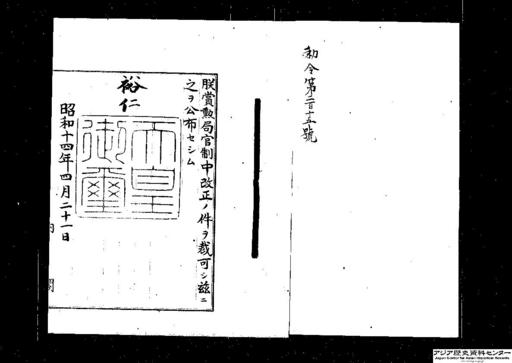 勅令第二百十五號
朕賞勲局官制中改正ノ件ヲ裁可シ茲ニ
之ヲ公布セシム
裕仁
天皇御璽
昭和十四年四月二十一日
内閣
アジア歴史資料センター
Japan Center for Asian Historical Records